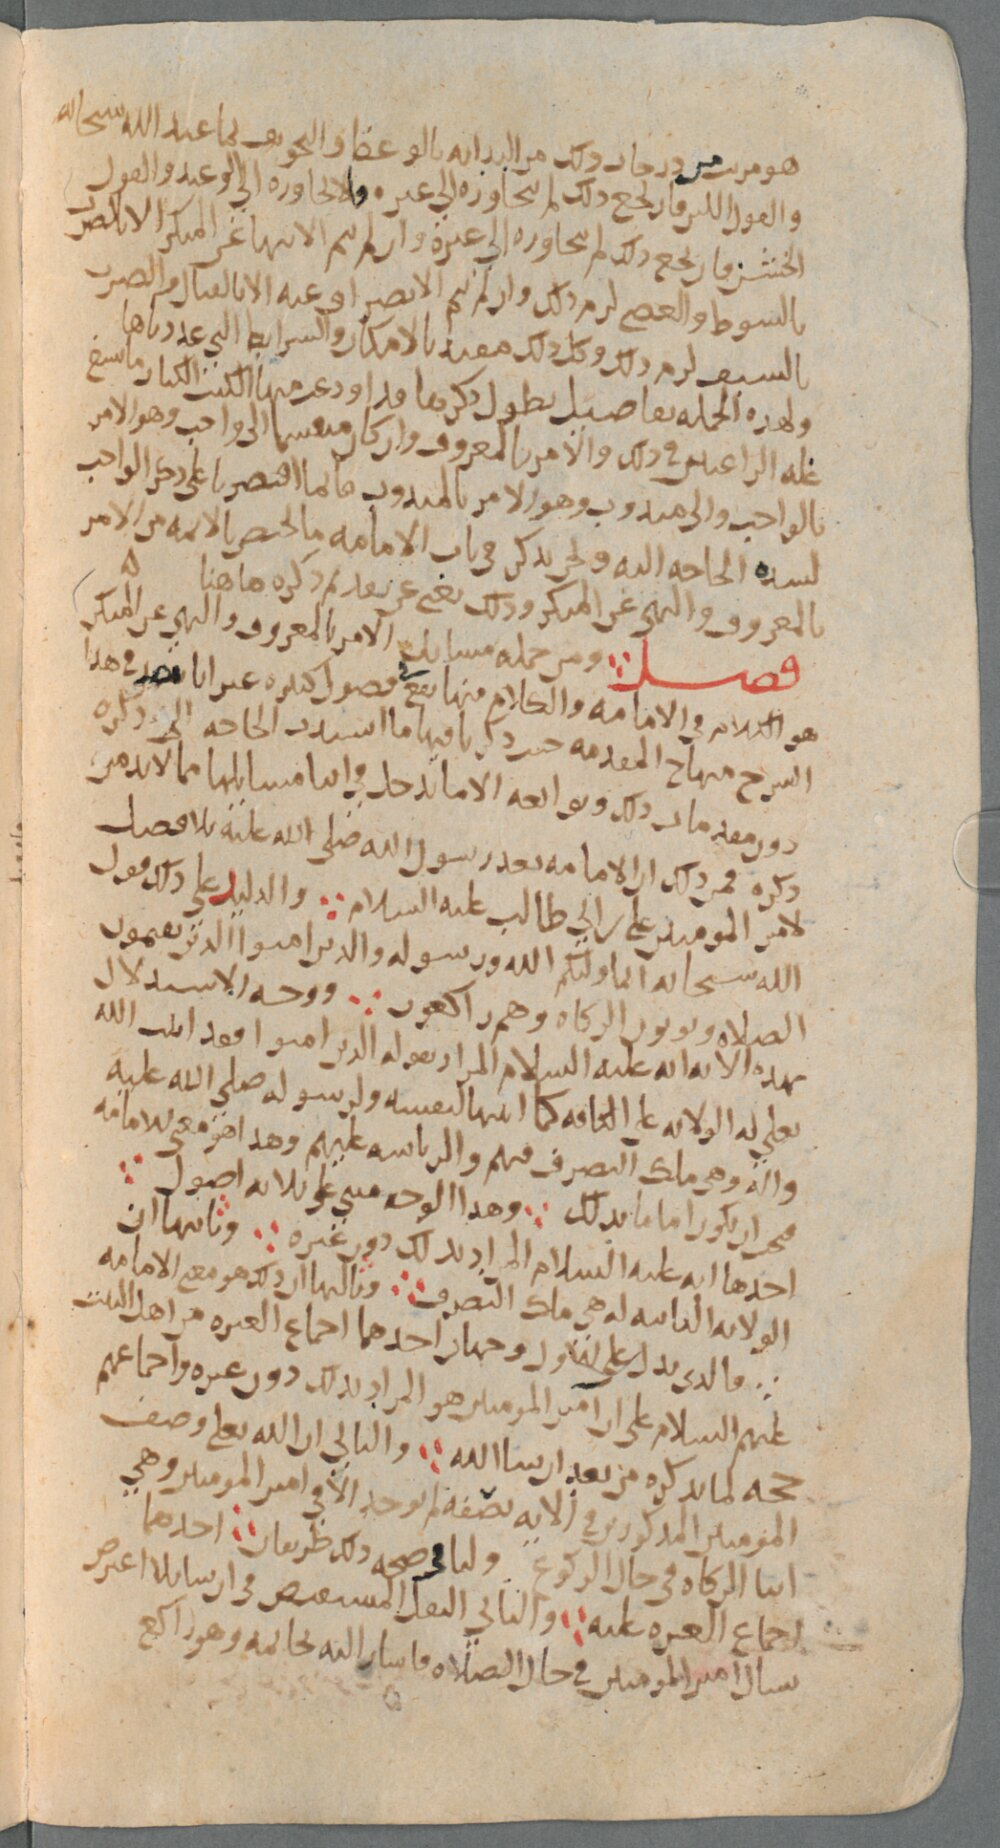 هو مرتب من درجات وذلك من البداية بالوعظ والتخويف لما عند الله سبحانه
والقول اللين فان نجع ذلك لم يتجاوزه الى غيره والا تجاوزه الى الوعيد والقول
الخشن فان نجع ذلك لم يتجاوزه الى غيره وان لم يتم الانتهاء عن المنكر الا بالضرب
بالسوط والعصى لزم ذلك وان لم يتم الانصراف عنه الا بالقتال والضرب
بالسيف لزم ذلك وكل ذلك مقيد بالامكان والشرايط التي عددناها
ولهذه الجملة تفاصيل يطول ذكرها قد اودع منها الكتب الكبار ما يشفي
غلة الراغبين في ذلك والامر بالمعروف وان كان منقسما الى واجب وهو الامر
بالواجب والى مندوب وهو الامر بالمندوب فانما اقتصرنا على ذكر الواجب
لشدة الحاجة اليه ونحن نذكر في باب الامامة ما يختص بالايمة من الامر
بالمعروف والنهي عن المنكر وذلك يغني عن تقديم ذكره هاهنا ه
فصل ومن جملة مسايل الامر بالمعروف والنهي عن المنكر
هو الكلام في الامامة والكلام فيها يقع في فصول كثيرة غير انا نقصد في هذا
الشرح منهاج المقدمة حيث ذكرنا فيها ما اشتدت الحاجة الى ذكره
دون مقدمات ذلك وتوابعه الا ما يدخل في اثنا مسايلها مما لا بد من
ذكره فمن ذلك ان الامامة بعد رسول الله صلى الله عليه بلا فصل
لامير المومنين علي بن ابي طالب عليه السلام والدليل على ذلك قول
الله سبحانه انما وليكم الله ورسوله والذين امنوا الذين يقيمون
الصلاة ويوتون الزكاة وهم راكعون ووجه الاستدلال
بهذه الاية انه عليه السلام المراد بقوله الذين امنوا فقد اثبت الله
تعالى له الولاية على الكافة كما اثبتها لنفسه ولرسوله صلى الله عليه
واله وهي ملك التصرف فيهم والرياسة عليهم وهذا هو معنى الامامة
فيجب ان يكون اماما بذلك وهذا الوجه مبني على ثلاثة اصول
احدها انه عليه السلام المراد بذلك دون غيره وثانيها ان
الولاية الثابتة له هي ملك التصرف وثالثها ان ذلك هو معنى الامامة
فالذي يدل على الاول وجهان احدهما اجماع العترة من اهل البيت
عليهم السلام على ان امير المومنين هو المراد بذلك دون غيره واجماعهم
حجة لما نذكره من بعد ان شا الله والثاني ان الله تعالى وصف
المومنين المذكورين في الاية بصفة لم توجد الا في امير المومنين وهي
ايتا الزكاة في حال الركوع ولنا في صحة ذلك طريقان احدهما
اجماع العترة عليه والثاني النقل المستفيض في ان سايلا اعترض
سال امير المومنين في حال الصلاة فاشار اليه بخاتمه وهو راكع